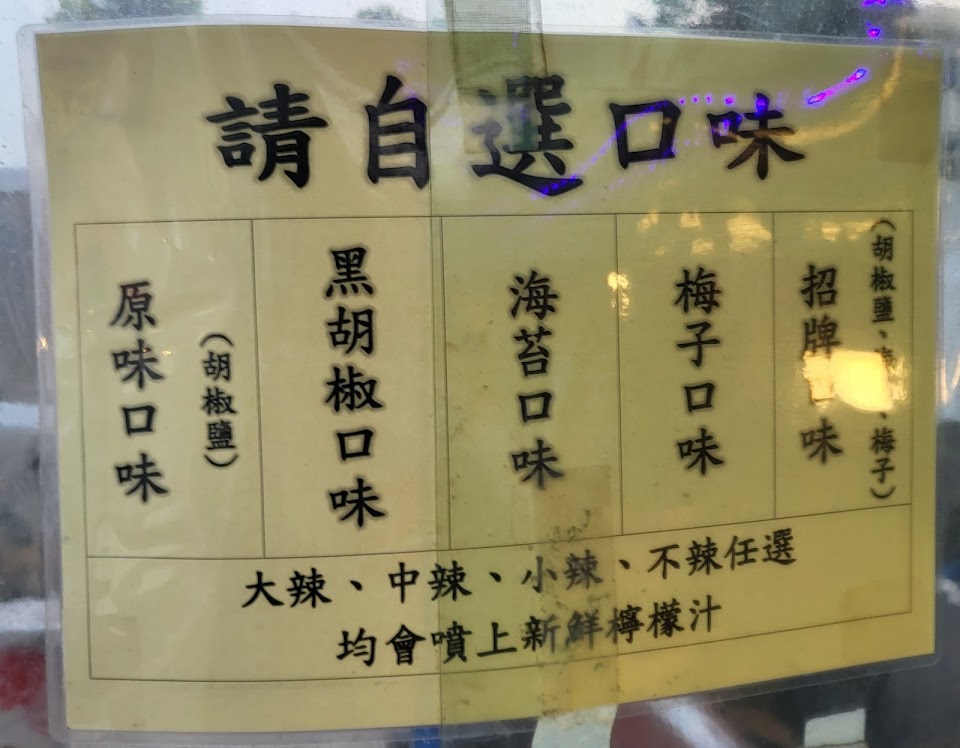 請自選口味
(胡椒鹽、、梅子)
招牌味
梅子口味
海苔口味
黑胡椒口味
(胡椒鹽)
原味口味
大辣、中辣、小辣、不辣任選
均會噴上新鮮檸檬汁